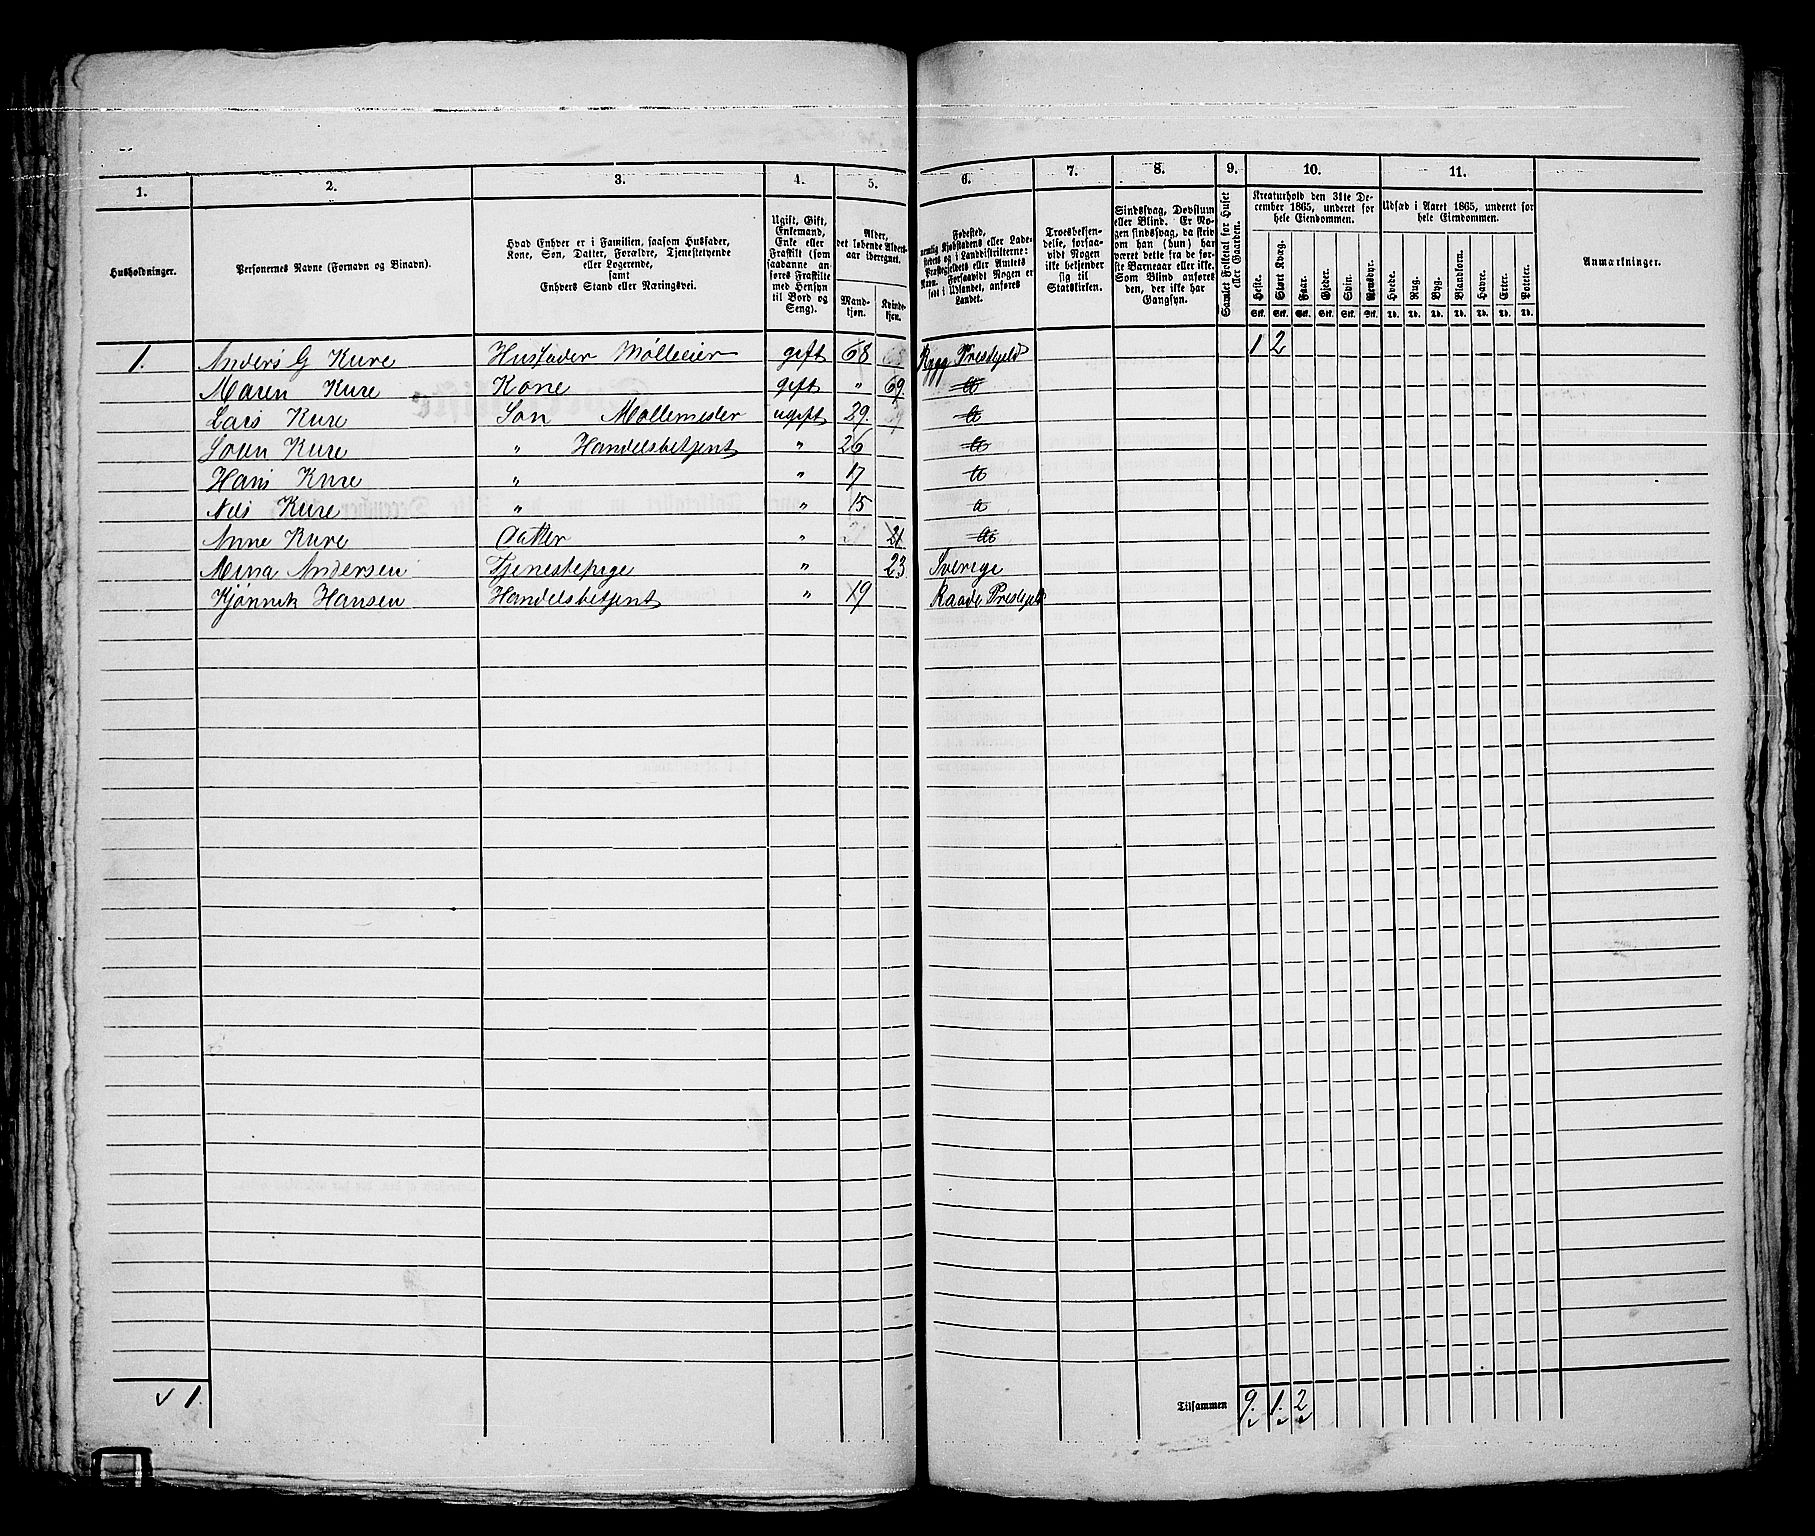 1. 2. 3. 4. 5. 6. 7. 8. 9. 10. 11.
Husholdninger.
Personernes Navne (Fornavn og Binavn).
Hvad Enhver er i Familien, saasom Husfader,
Kone, Søn, Datter, Forældre, Tjenestetyende
eller Logerende,
samt
Enhvers Stand eller Næringsvei.
Ugift, Gift,
Enkemand,
Enke eller
Fraskilt (som
saadanne an-
føres Fraskilte
med Hensyn
til Bord og
Seng).
Alder,
det løbende Alders-
aar iberegnet.
Mand-
kjøn.
Kvinde-
kjøn.
Fødested,
nemlig Kjøbstadens eller Lade-
stedets og i Landdistrikterne:
Præstegjeldets eller Amtets
Navn. Forsaavidt Nogen er
født i Udlandet, anføres
Landet.
Troesbekjen-
delse, forsaa-
vidt Nogen
ikke bekjender
sig til
Statskirken.
Sindssvag, Døvstum
eller Blind. Er No-
gen sindssvag, da skriv
om han (hun) har
været dette fra de før-
ste Barneaar eller ikke.
Som Blind anføres
den, der ikke har
Gangsyn.
Samlet Folketal for Huset
eller Gaarden.
Kreaturhold den 31te De-
cember 1865, underet for
hele Eiendommen.
Heste. Stort Kvæg. Faar. Gjeder. Svin. Rensdyr.
Stk. Stk. Stk. Stk. Stk. Stk.
Udsæd i Aaret 1865, underet for
hele Eiendommen.
Hvede. Rug. Byg. Blandkorn. Havre. Erter. Poteter.
Td. Td. Td. Td. Td. Td. Td.
Anmærkninger.
1. Anders G Kure Husfader Mølleeier gift 68 Rygg Prestgjeld 1 2
Maren Kure Kone gift " 69
Lars Kure Søn Møllemester ugift 29
Soren Kure " Handelsbetjent " 26
Hans Kure " " 17
Nils Kure " " 15
Anne Kure Datter " 21
Mina Andersen Tjenestepige " 23 Sverige
Kjønnik Hansen Handelsbetjent " 19 Raade Prestgjeld
1.
Tilsammen 9. 1. 2